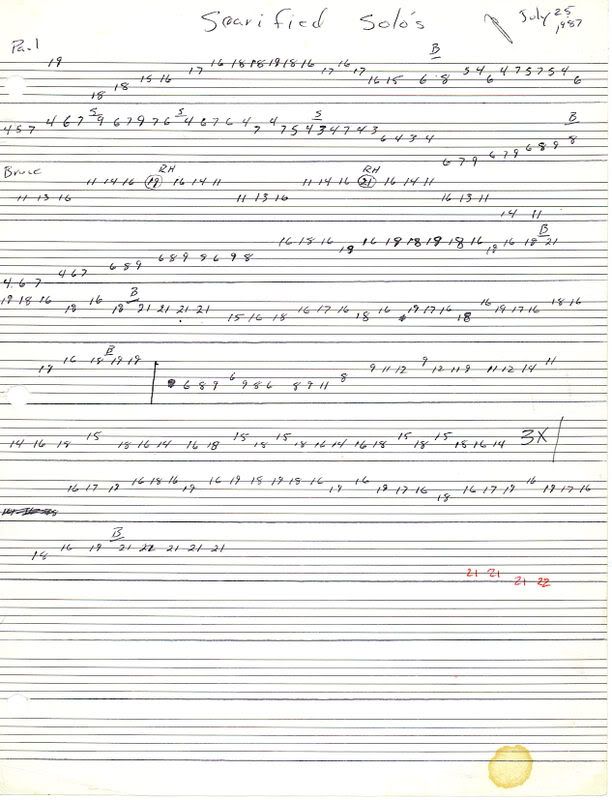 Scarified Solo's
July 25 1987
Paul
19 18 18 15 16 17 16 18 18 19 18 16 17 16 17 16 15 B 6 8 5 4 6 4 7 5 7 5 4 6
4 5 7 4 6 7 S 9 6 7 9 7 6 S 4 6 7 6 4 7 4 7 5 S 4 3 4 7 4 3 6 4 3 4 6 7 9 6 7 9 6 8 9 B 8
Bruce
11 13 16 11 14 16 RH 19 16 14 11 11 13 16 11 14 16 RH 21 16 14 11 16 13 11 14 11
4 6 7 4 6 7 6 8 9 6 8 9 8 6 9 8 16 18 16 19 16 19 18 18 19 18 16 19 16 18 B 21
19 18 16 18 16 18 B 21 21 21 21 15 16 18 16 17 16 18 16 19 17 16 18 16 19 17 16 18 16
19 16 18 B 19 19 6 8 9 6 9 8 6 8 9 11 8 9 11 12 9 12 11 9 11 12 14 11
14 16 18 15 18 16 14 16 18 15 18 15 18 16 14 16 18 15 18 15 18 16 14 3X
16 17 19 16 18 16 19 16 19 18 19 18 16 19 16 19 17 16 18 16 17 19 16 19 17 16
18 16 19 B 21 22 21 21 21
21 21 21 22